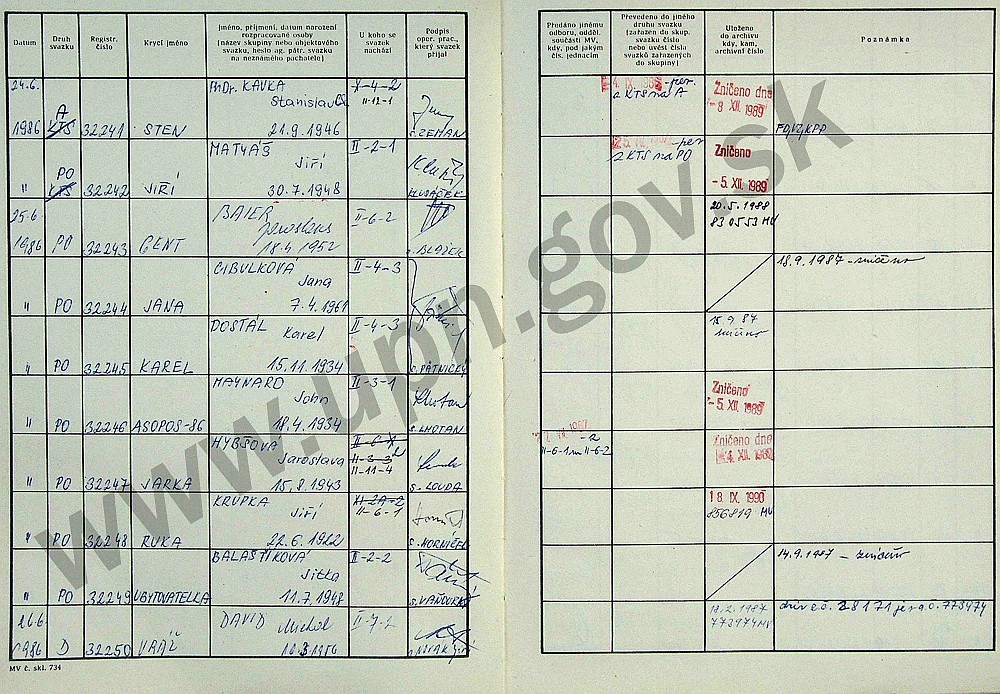 Datum
Druh svazku
Registr. číslo
Krycí jméno
Jméno, příjmení, datum narození rozpracované osoby (název skupiny nebo objektového svazku, heslo ag. pátr. svazku na neznámého pachatele)
U koho se svazek nachází
Podpis oper. prac., který svazek přijal
Předáno jinému odboru, odděl. součásti MV, kdy, pod jakým čís. jednacím
Převedeno do jiného druhu svazku (zařazen do skup. svazku číslo nebo uvést čísla svazků zařazených do skupiny)
Uloženo do archivu kdy, kam, archivní číslo
Poznámka
24.6. 1986 A KTS 32241 STEN KAVKA Stanislav 21.9.1946 X-4-2 II-12-1 ZEMAN
z KTS na A
Zničeno dne - 8 XII. 1989
" PO KTS 32242 JIŘÍ MATYÁŠ Jiří 30.7.1948 II-2-1 HUSÁČEK
z KTS na PO
Zničeno - 5. XII. 1989
25.6 1986 PO 32243 CENT BAIER 18.4.1952 II-6-2 BLAŽEK
20.5.1988 830553 MV
" PO 32244 JANA CIBULKOVÁ Jana 7.4.1961 II-4-3
18.9.1987 - zničeno
" PO 32245 KAREL DOSTÁL Karel 15.11.1934 II-4-3 PÁTNICKÝ
15.9.87 zničeno
" PO 32246 ASOPOS-86 MAYNARD John 18.4.1934 II-3-1 s. LHOTAN
Zničeno - 5. XII. 1989
" PO 32247 JARKA HYBŠOVÁ Jaroslava 15.8.1943 II-3-3 II-11-4 s. LOUDA
II-6-1 II-6-2
Zničeno dne XII. 1989
" PO 32248 RUKA KRUPKA Jiří 22.6.1922 II-6-1
18 IX. 1990 856819 MV
" PO 32249 UBYTOVATELKA BALAŠTÍKOVÁ Jitka 11.7.1948 II-2-2
14.9.1987 - zničeno
26.6 1986 D 32250 DAVID Michal II-7-2
18.2.1987 773974 MV
www.upn.gov.sk
MV č. skl. 734